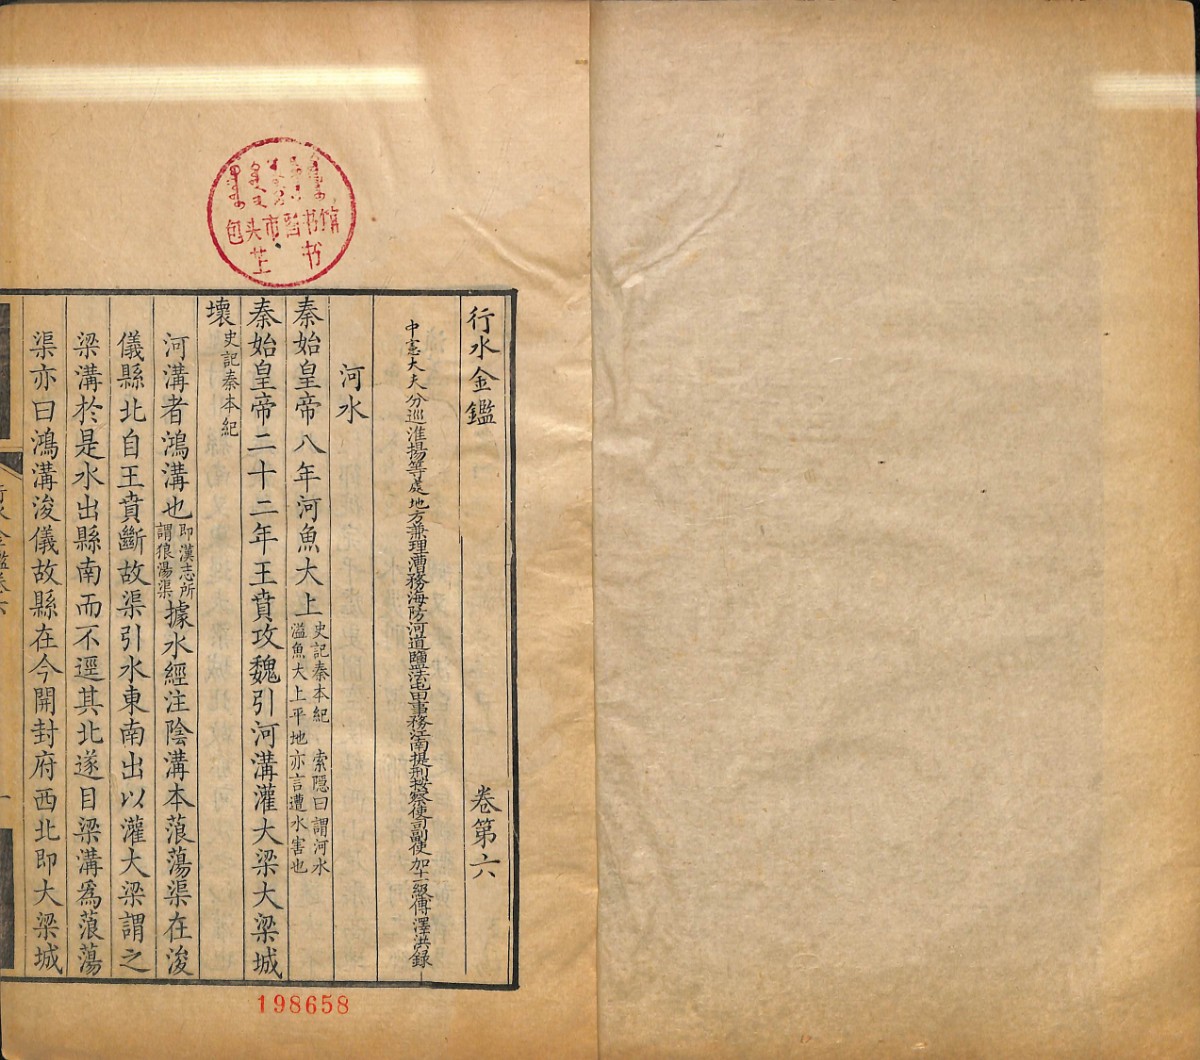 行水金鑑 卷第六
中憲大夫分巡淮揚等處地方兼理漕務海防河道鹽法屯田事務江南提刑按察使司副使加十一級傅澤洪録
河水
秦始皇帝八年河魚大上史記秦本紀 索隱曰謂河水溢魚大上平地亦言遭水害也
秦始皇帝二十二年王賁攻魏引河溝灌大梁大梁城
壞史記秦本紀
河溝者鴻溝也即漢志所謂狼湯渠據水經注陰溝本蒗蕩渠在浚
儀縣北自王賁斷故渠引水東南出以灌大梁謂之
梁溝於是水出縣南而不逕其北遂目梁溝爲蒗蕩
渠亦曰鴻溝浚儀故縣在今開封府西北即大梁城
行水金鑑卷六
一
包头市图书馆
书
198658